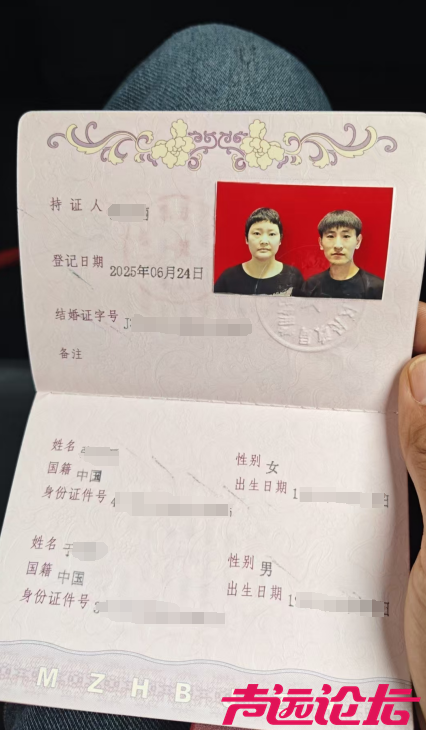 持证人
登记日期 2025年06月24日
结婚证字号 J
备注
姓名
性别 女
国籍 中国
出生日期 1
身份证件号 4
姓名 于
性别 男
国籍 中国
出生日期 19
身份证件号 3
MZHB
声远论坛